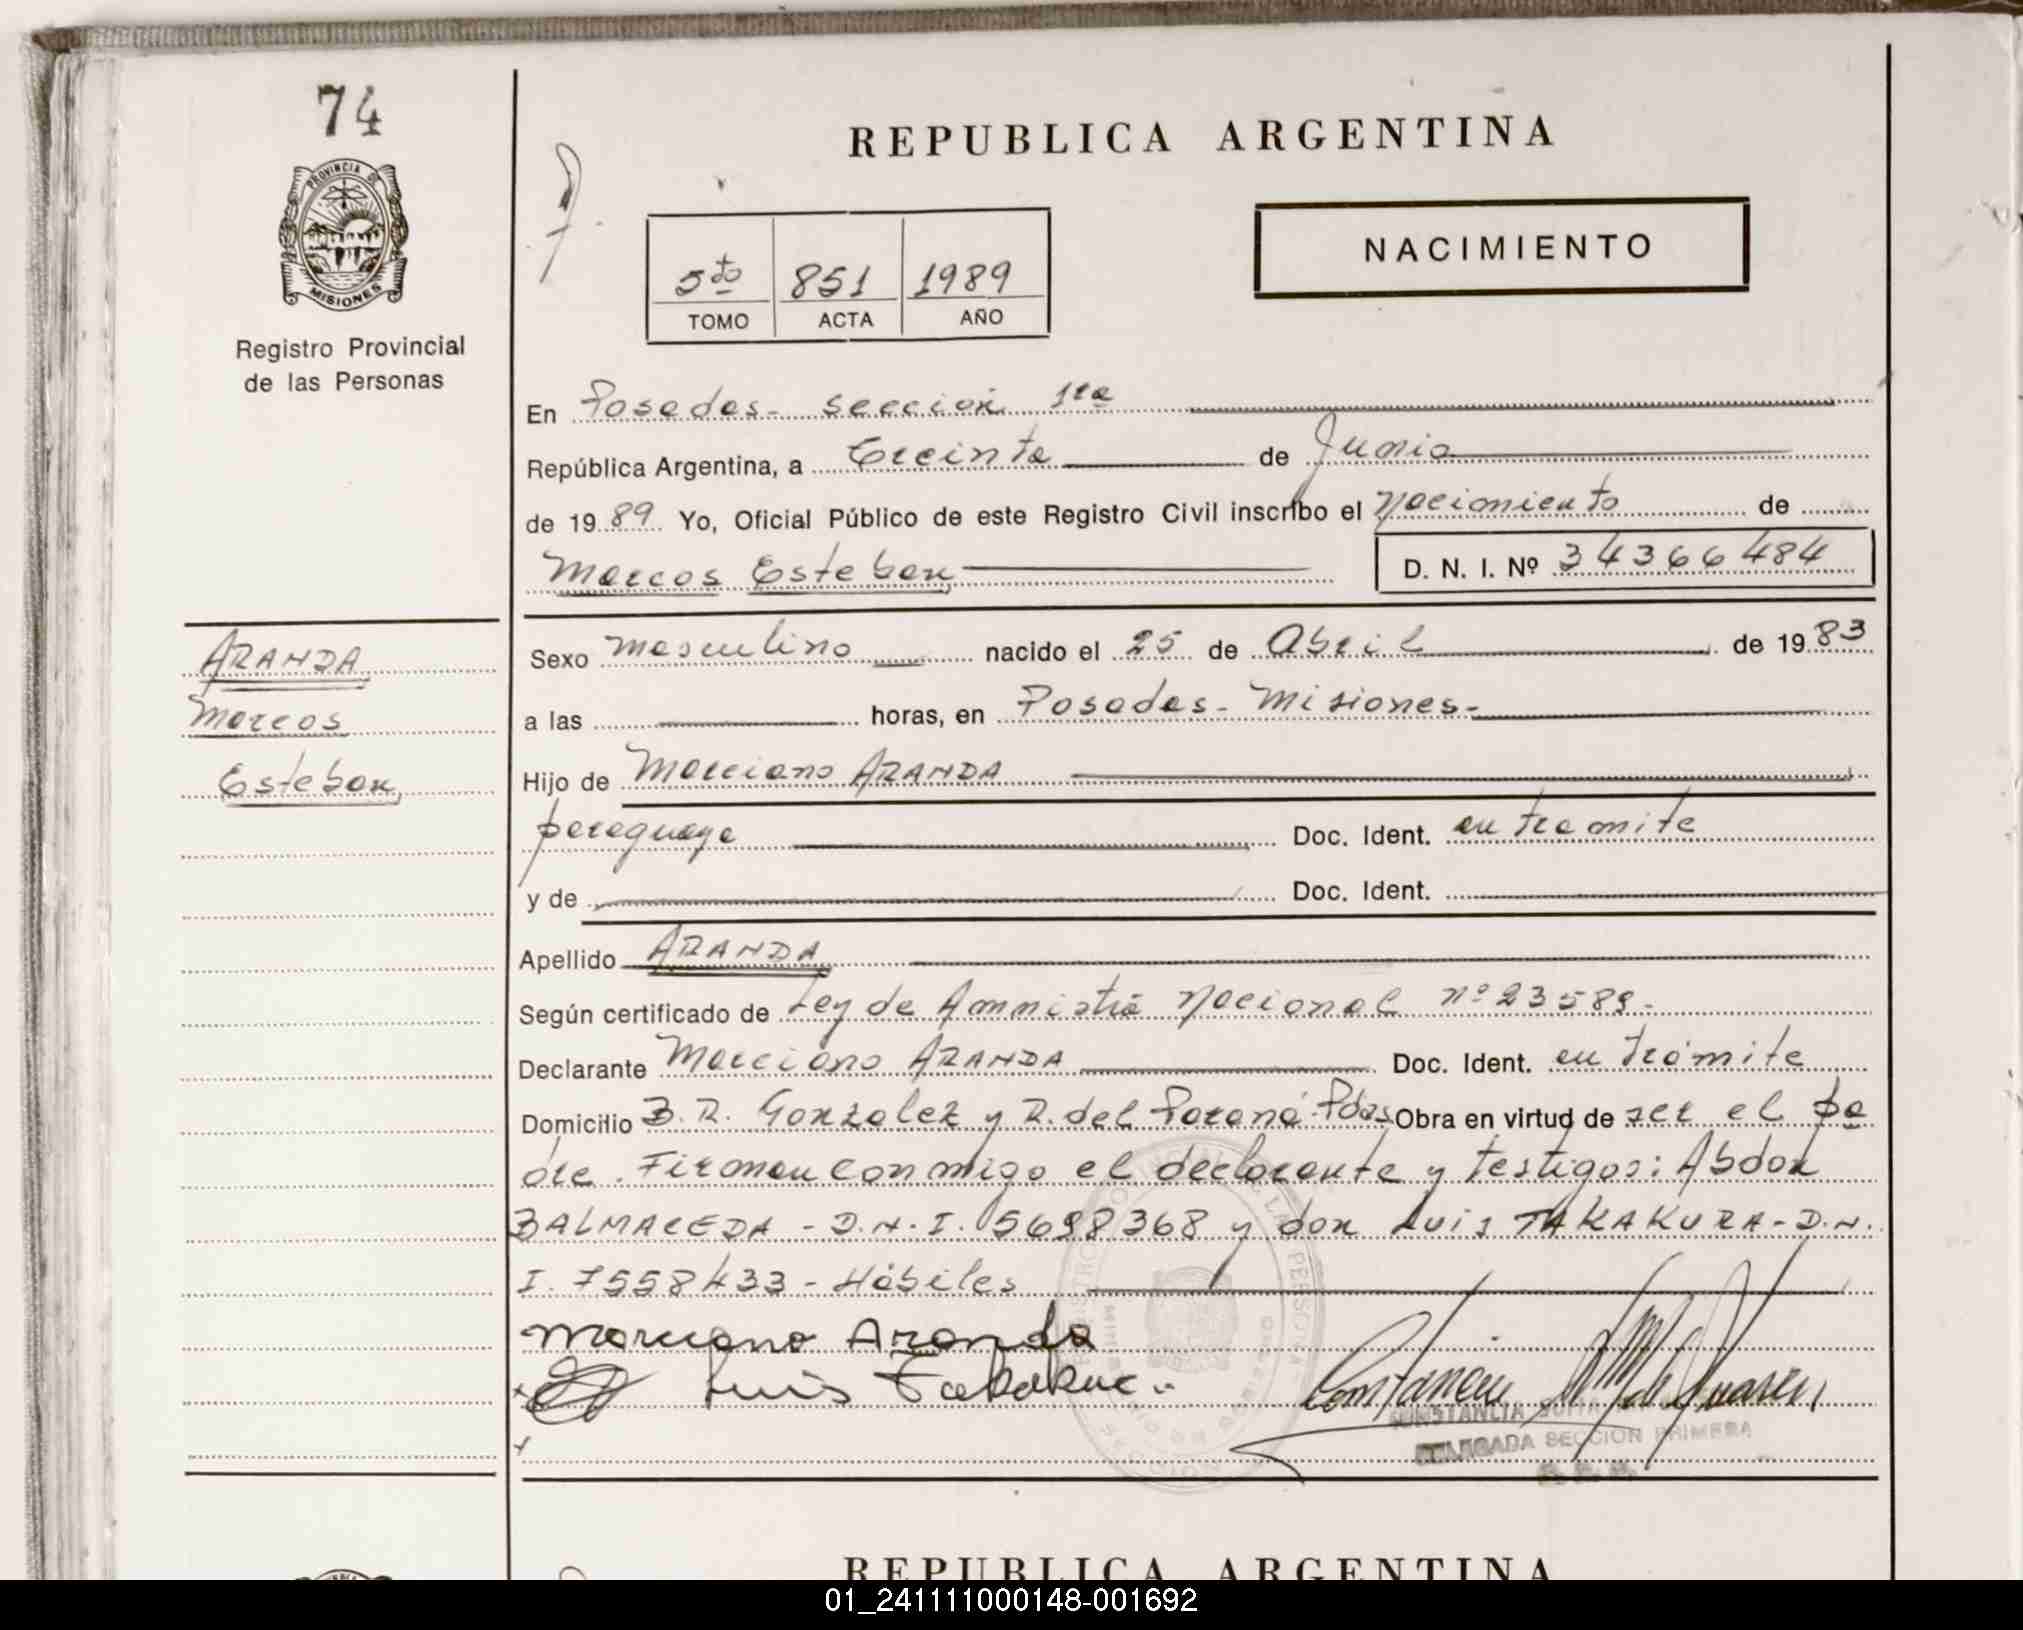 74
PROVINCIA DE
MISIONES
Registro Provincial
de las Personas
REPUBLICA ARGENTINA
NACIMIENTO
5to 851 1989
TOMO ACTA AÑO
En Posadas - sección 1ra
República Argentina, a Treinta de Junio
de 1989 Yo, Oficial Público de este Registro Civil inscribo el nacimiento de
Marcos Esteban D. N. I. Nº 34366484
ARANDA
Marcos
Esteban
Sexo masculino nacido el 25 de Abril de 1983
a las horas, en Posadas - Misiones -
Hijo de Marciano ARANDA
paraguaya Doc. Ident. en tramite
y de Doc. Ident.
Apellido ARANDA
Según certificado de Ley de Ammistía Nacional nº 23589 -
Declarante Marciano ARANDA Doc. Ident. en trámite
Domicilio B. R. Gonzalez y R. del Paraná - Pdas Obra en virtud de ser el pa
dre. Firman conmigo el declarante y testigos: Abdon
BALMACEDA - D.N.I. 5698368 y don Luis TAKAKURA - D.N.
I. 7558433 - Hábiles
Marciano Aranda
Luis Takakura
Constancia
CONSTANCIA
DELEGADA SECCION PRIMERA
REPUBLICA ARGENTINA
01_241111000148-001692